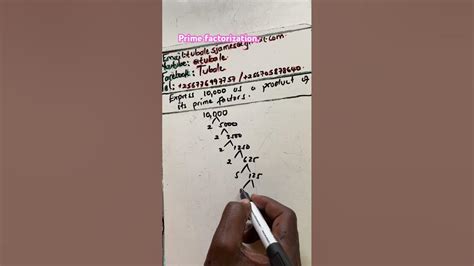 Prime factorization
Email: tubalesjames@gmail.com
Youtube: @tubale
Facebook: Tubale
Tel: +256776997757 / +256705878640
Express 10,000 as a product of
its prime factors.
10,000
2 5000
2 2500
2 1250
2 625
5 125